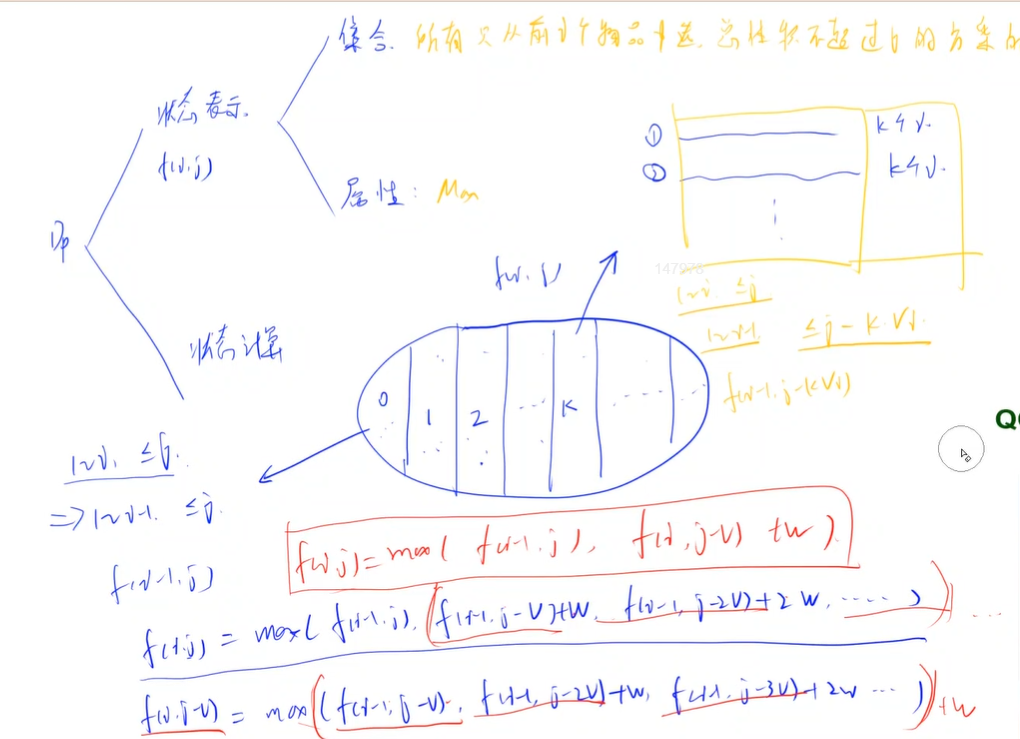 集合. 所有只从前i个物品中选, 总体积不超过j的方案的
状态表示
f(i,j)
属性: Max
DP
状态计算
① k个i.
② k个i.
⋮
147978
f(i,j)
1~i ≤j
1~i-1 ≤j-k·Vi
f(i-1,j-kVi)
0 1 2 ... K ......
1~i, ≤j.
=> 1~i-1. ≤j.
f(i-1,j)
f(i,j)=max( f(i-1,j), f(i,j-V)+W )
f(i,j) = max( f(i-1,j), f(i-1,j-V)+W, f(i-1,j-2V)+2W, ..... )
f(i,j-V) = max( f(i-1,j-V), f(i-1,j-2V)+W, f(i-1,j-3V)+2W ... ) +W